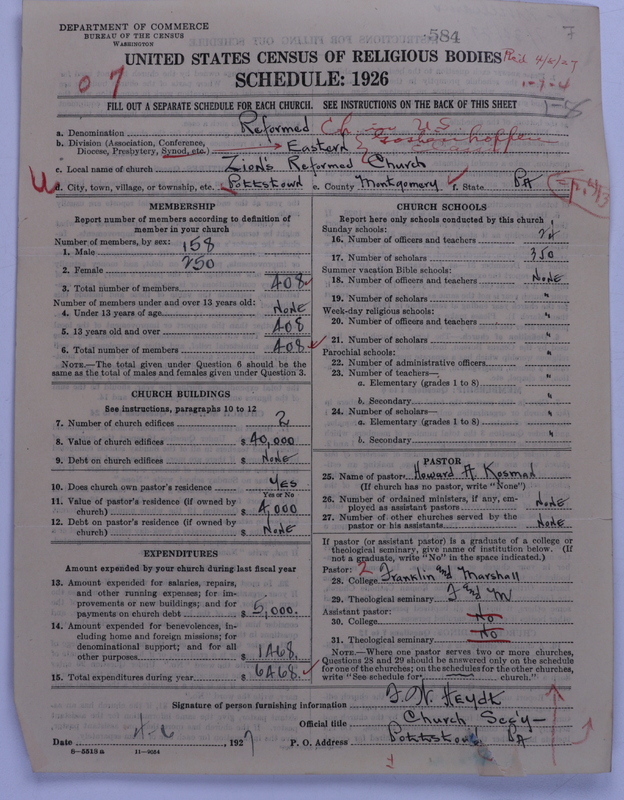 584
DEPARTMENT OF COMMERCE
BUREAU OF THE CENSUS
WASHINGTON
UNITED STATES CENSUS OF RELIGIOUS BODIES
4/8/27
SCHEDULE: 1926
1-7-4
07
1-8
FILL OUT A SEPARATE SCHEDULE FOR EACH CHURCH. SEE INSTRUCTIONS ON THE BACK OF THIS SHEET
a. Denomination Reformed Ch in US
b. Division (Association, Conference, Diocese, Presbytery, Synod, etc.) Eastern Goshenhoppen
c. Local name of church Zion's Reformed Church
d. City, town, village, or township, etc. Pottstown e. County Montgomery f. State PA
MEMBERSHIP
Report number of members according to definition of member in your church
Number of members, by sex:
1. Male 158
2. Female 250
3. Total number of members 408
Number of members under and over 13 years old:
4. Under 13 years of age NONE
5. 13 years old and over 408
6. Total number of members 408
NOTE.—The total given under Question 6 should be the same as the total of males and females given under Question 3.
CHURCH BUILDINGS
See instructions, paragraphs 10 to 12
7. Number of church edifices 2
8. Value of church edifices $ 40,000
9. Debt on church edifices $ NONE
10. Does church own pastor's residence YES
Yes or No
11. Value of pastor's residence (if owned by church) $ 4,000
12. Debt on pastor's residence (if owned by church) $ NONE
EXPENDITURES
Amount expended by your church during last fiscal year
13. Amount expended for salaries, repairs, and other running expenses; for improvements or new buildings; and for payments on church debt $ 5,000.
14. Amount expended for benevolences, including home and foreign missions; for denominational support; and for all other purposes $ 1468.
15. Total expenditures during year $ 6468.
CHURCH SCHOOLS
Report here only schools conducted by this church
Sunday schools:
16. Number of officers and teachers
17. Number of scholars 350
Summer vacation Bible schools:
18. Number of officers and teachers NONE
19. Number of scholars "
Week-day religious schools:
20. Number of officers and teachers "
21. Number of scholars "
Parochial schools:
22. Number of administrative officers "
23. Number of teachers—
a. Elementary (grades 1 to 8) "
b. Secondary "
24. Number of scholars—
a. Elementary (grades 1 to 8) "
b. Secondary "
PASTOR
25. Name of pastor Howard A. Kosman
(If church has no pastor, write "None")
26. Number of ordained ministers, if any, employed as assistant pastors NONE
27. Number of other churches served by the pastor or his assistants NONE
If pastor (or assistant pastor) is a graduate of a college or theological seminary, give name of institution below. (If not a graduate, write "No" in the space indicated.)
Pastor: 2
28. College Franklin and Marshall
29. Theological seminary F and M
Assistant pastor:
30. College No
31. Theological seminary No
NOTE.—Where one pastor serves two or more churches, Questions 28 and 29 should be answered only on the schedule for one of the churches; on the schedules for the other churches, write "See schedule for church."
Signature of person furnishing information J. W. Heydt
Official title Church Sec'y—
Date 4-6, 1927 P. O. Address Pottstown PA
8-5518a 11-9034